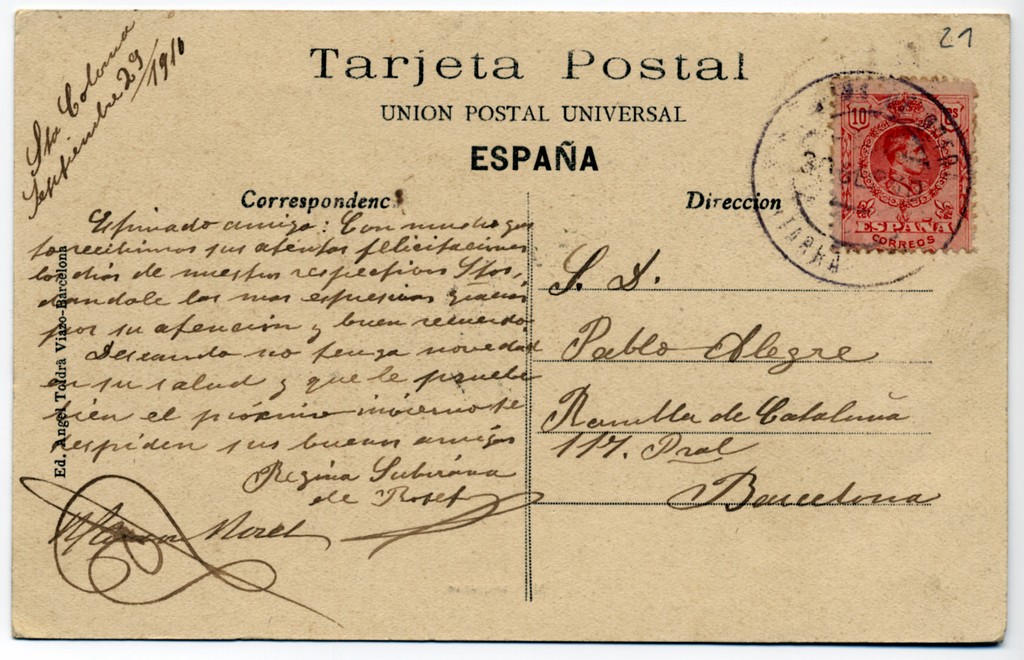 21
Sta Coloma
Septiembre 29/1910
Tarjeta Postal
UNION POSTAL UNIVERSAL
ESPAÑA
Correspondenc
Direccion
10 Cs
ESPAÑA
CORREOS
Estimado amigo: Con mucho gus
to recibimos sus atentas felicitaciones
los dias de nuestros respectivos Stos,
dandole las mas expresivas gracias
por su atencion y buen recuerdo.
Deseando no tenga novedad
en su salud y que le pruebe
bien el próximo invierno se
despiden sus buenos amigos
Regina Subirána
de Roset
Roset
S. D.
Pablo Alegre
Rambla de Cataluña
117. Pral
Barcelona
Ed. Angel Toldrá Viazo-Barcelona